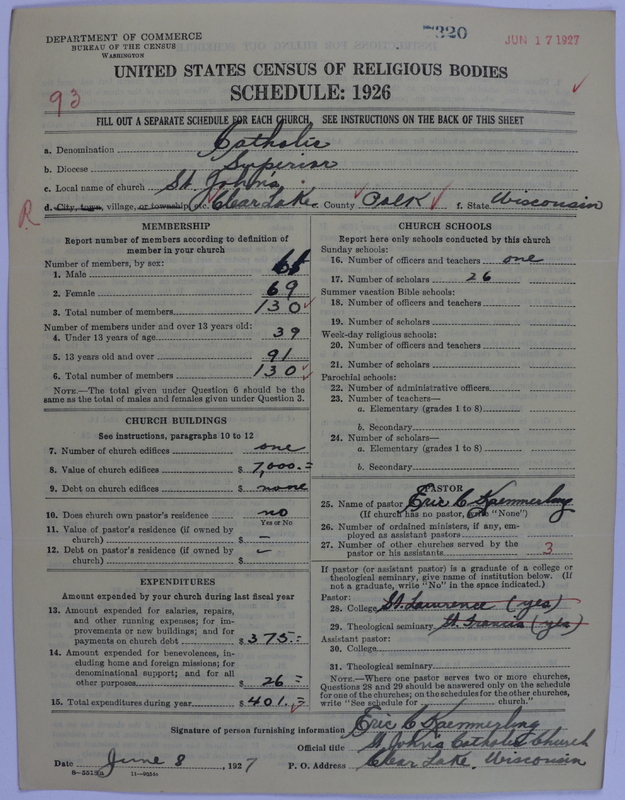 7320
JUN 17 1927
DEPARTMENT OF COMMERCE
BUREAU OF THE CENSUS
WASHINGTON
UNITED STATES CENSUS OF RELIGIOUS BODIES
SCHEDULE: 1926
93
FILL OUT A SEPARATE SCHEDULE FOR EACH CHURCH. SEE INSTRUCTIONS ON THE BACK OF THIS SHEET
a. Denomination Catholic
b. Diocese Superior
c. Local name of church St. John's
R
d. City, town, village, or township, etc. Clear Lake e. County Polk f. State Wisconsin
MEMBERSHIP
Report number of members according to definition of
member in your church
Number of members, by sex:
1. Male 61
2. Female 69
3. Total number of members 130
Number of members under and over 13 years old:
4. Under 13 years of age 39
5. 13 years old and over 91
6. Total number of members 130
NOTE.—The total given under Question 6 should be the
same as the total of males and females given under Question 3.
CHURCH BUILDINGS
See instructions, paragraphs 10 to 12
7. Number of church edifices one
8. Value of church edifices $ 7,000.=
9. Debt on church edifices $ none
10. Does church own pastor's residence? no
Yes or No
11. Value of pastor's residence (if owned by
church) $ —
12. Debt on pastor's residence (if owned by
church) $ –
EXPENDITURES
Amount expended by your church during last fiscal year
13. Amount expended for salaries, repairs,
and other running expenses; for im-
provements or new buildings; and for
payments on church debt $ 375.=
14. Amount expended for benevolences, in-
cluding home and foreign missions; for
denominational support; and for all
other purposes $ 26 =
15. Total expenditures during year $ 401.=
CHURCH SCHOOLS
Report here only schools conducted by this church
Sunday schools:
16. Number of officers and teachers one
17. Number of scholars 26
Summer vacation Bible schools:
18. Number of officers and teachers
19. Number of scholars
Week-day religious schools:
20. Number of officers and teachers
21. Number of scholars
Parochial schools:
22. Number of administrative officers
23. Number of teachers—
a. Elementary (grades 1 to 8)
b. Secondary
24. Number of scholars—
a. Elementary (grades 1 to 8)
b. Secondary
PASTOR
25. Name of pastor Eric C Kaemmerling
(If church has no pastor, write "None")
26. Number of ordained ministers, if any, em-
ployed as assistant pastors
27. Number of other churches served by the
pastor or his assistants 3
If pastor (or assistant pastor) is a graduate of a college or
theological seminary, give name of institution below. (If
not a graduate, write "No" in the space indicated.)
Pastor:
28. College St. Lawrence (yes)
29. Theological seminary St. Francis (yes)
Assistant pastor:
30. College
31. Theological seminary
NOTE.—Where one pastor serves two or more churches,
Questions 28 and 29 should be answered only on the schedule
for one of the churches; on the schedules for the other churches,
write "See schedule for church."
Signature of person furnishing information Eric C Kaemmerling
Official title St John's Catholic Church
Date June 8, 1927 P. O. Address Clear Lake, Wisconsin